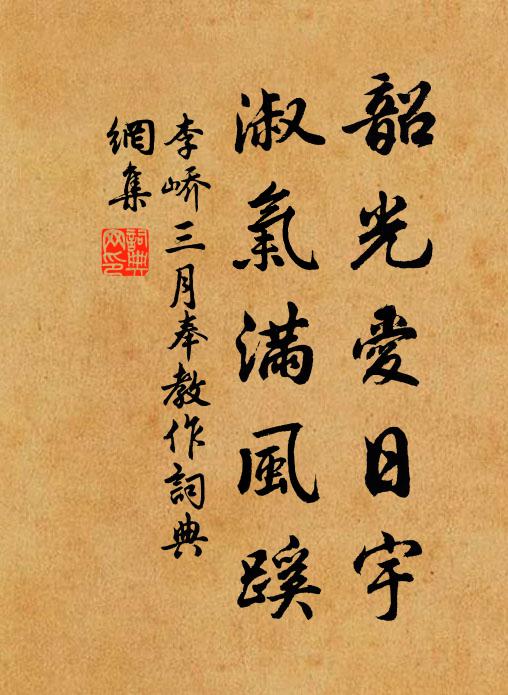 韶光愛日宇
淑氣滿風蹊
李嶠三月奉教作詞典
網集
詞典網印